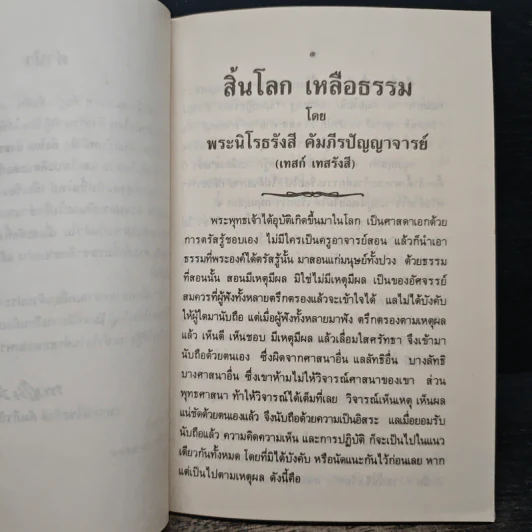 ๑
สิ้นโลก เหลือธรรม
โดย
พระนิโรธรังสี คัมภีรปัญญาจารย์
(เทสก์ เทสรังสี)
พระพุทธเจ้าได้อุบัติเกิดขึ้นมาในโลก เป็นศาสดาเอกด้วย
การตรัสรู้ชอบเอง ไม่มีใครเป็นครูอาจารย์สอน แล้วก็นำเอา
ธรรมที่พระองค์ได้ตรัสรู้นั้น มาสอนแก่มนุษย์ทั้งปวง ด้วยธรรม
ที่สอนนั้น สอนมีเหตุมีผล มิใช่ไม่มีเหตุมีผล เป็นของอัศจรรย์
สมควรที่ผู้ฟังทั้งหลายตรึกตรองแล้วจะเข้าใจได้ แลไม่ได้บังคับ
ให้ผู้ใดมานับถือ แต่เมื่อผู้ฟังทั้งหลายมาฟัง ตรึกตรองตามเหตุผล
แล้ว เห็นดี เห็นชอบ มีเหตุมีผล แล้วเลื่อมใสศรัทธา จึงเข้ามา
นับถือด้วยตนเอง ซึ่งผิดจากศาสนาอื่น แลลัทธิอื่น บางลัทธิ
บางศาสนาอื่น ซึ่งเขาห้ามไม่ให้วิจารณ์ศาสนาของเขา ส่วน
พุทธศาสนา ท้าให้วิจารณ์ได้เต็มที่เลย วิจารณ์เห็นเหตุ เห็นผล
แน่ชัดด้วยตนเองแล้ว จึงนับถือด้วยความเป็นอิสระ แลเมื่อยอมรับ
นับถือแล้ว ความคิดความเห็น และการปฏิบัติ ก็จะเป็นไปในแนว
เดียวกันทั้งหมด โดยที่มิได้บังคับ หรือนัดแนะกันไว้ก่อนเลย หาก
แต่เป็นไปตามเหตุผล ดังนี้คือ